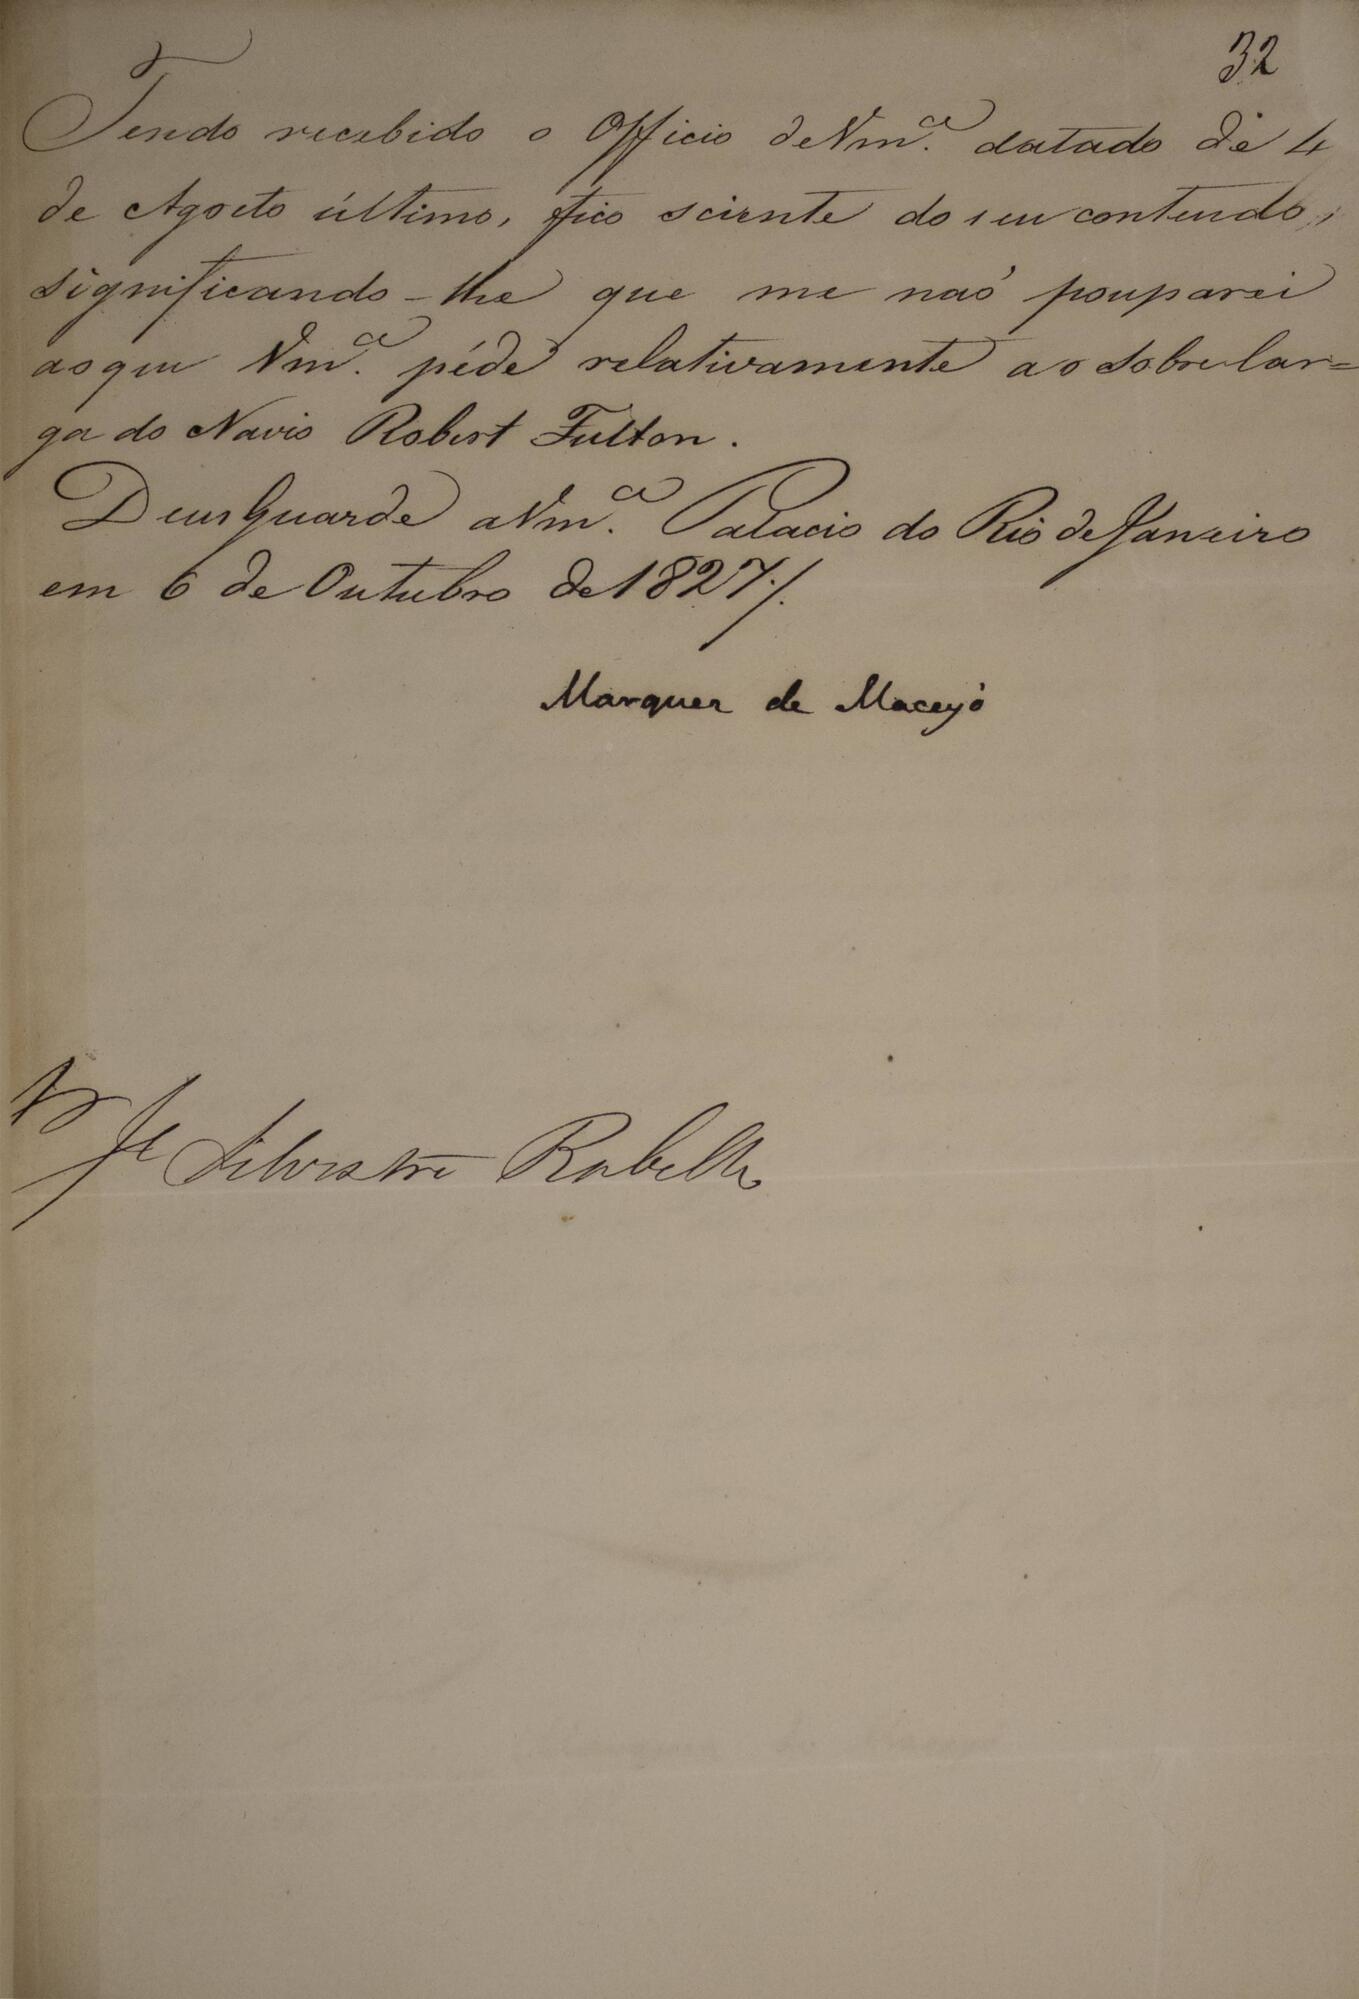 32
Tendo recebido o Officio de Vm.ce datado de 4
de Agosto último, fico sciente do seu contendo,
significando-lhe que me naõ pouparei
ao que Vm.ce péde relativamente ao sobrecar=
ga do Navio Robert Fulton.
Deus Guarde a Vm.ce Palacio do Rio de Janeiro
em 6 de Outubro de 1827/.
Marquez de Maceyó
Sr Je Silvestre Rebello